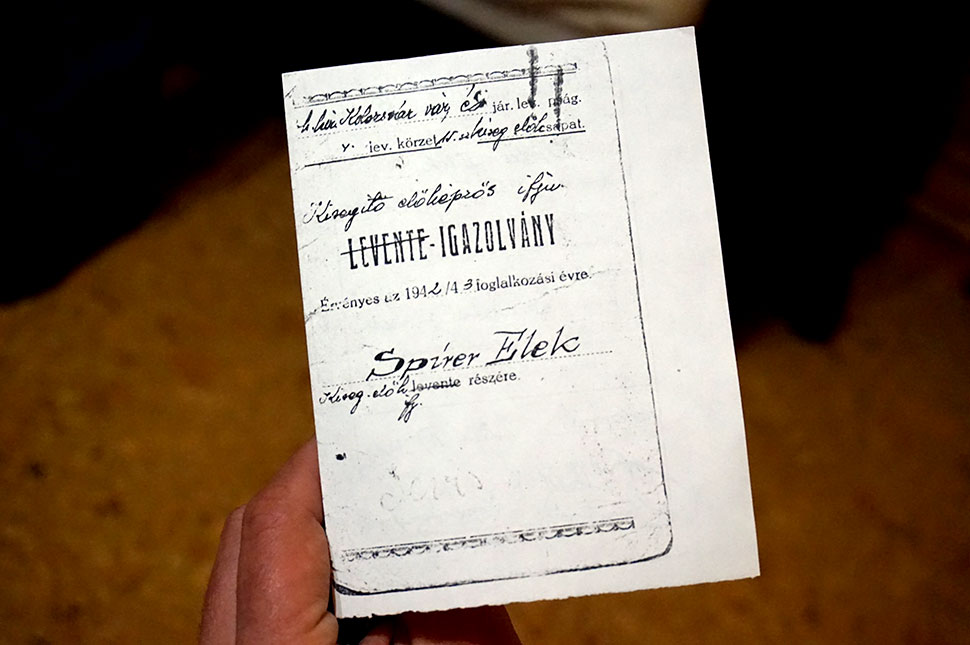 Kolozsvár vár. és jár. lev.
V. lev. körzet kiseg előcsapat.
Kisegítő előképzős ifju.
LEVENTE-IGAZOLVÁNY
Érvényes az 1942/43 foglalkozási évre.
Spírer Elek
Kiseg. elők levente részére.
ifj.